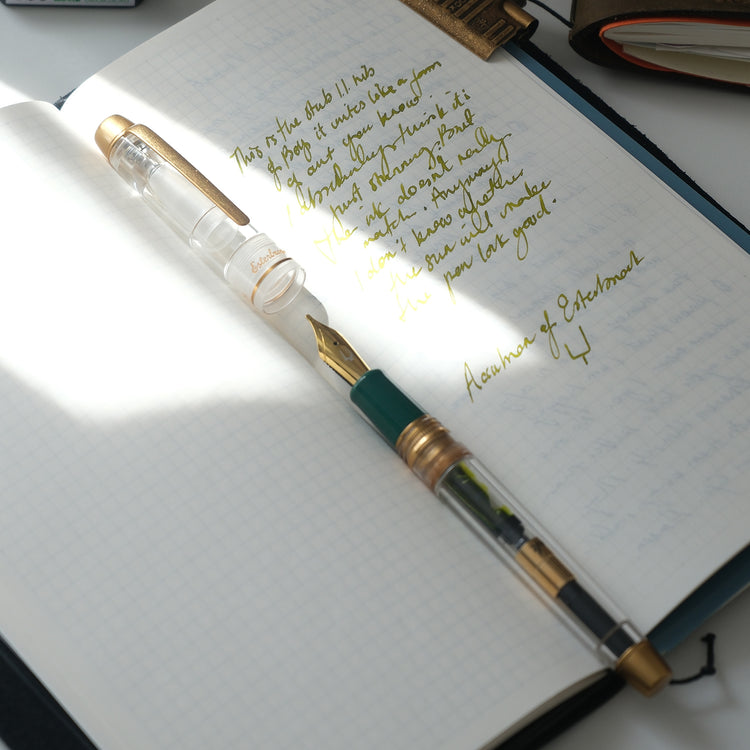 This is the stub 1.1 nib
it writes like a
out you know
Absolutely, think it's
just stunning. But
The ink doesn't really
match. Anyway,
I don't know whether
the sun will make
the pen look good.
of Esterbrook
Esterbrook